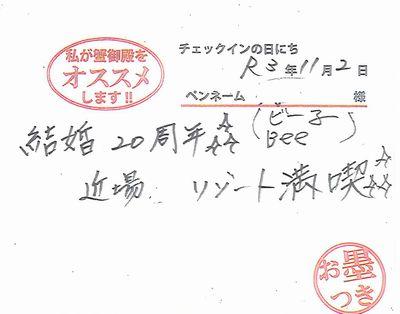 私が蟹御殿を
オススメ
します!!
チェックインの日にち
R3年11月2日
ペンネーム 様
(ビー子)
Bee
結婚20周年☆☆☆
近場 リゾート満喫☆☆☆
お墨
つき